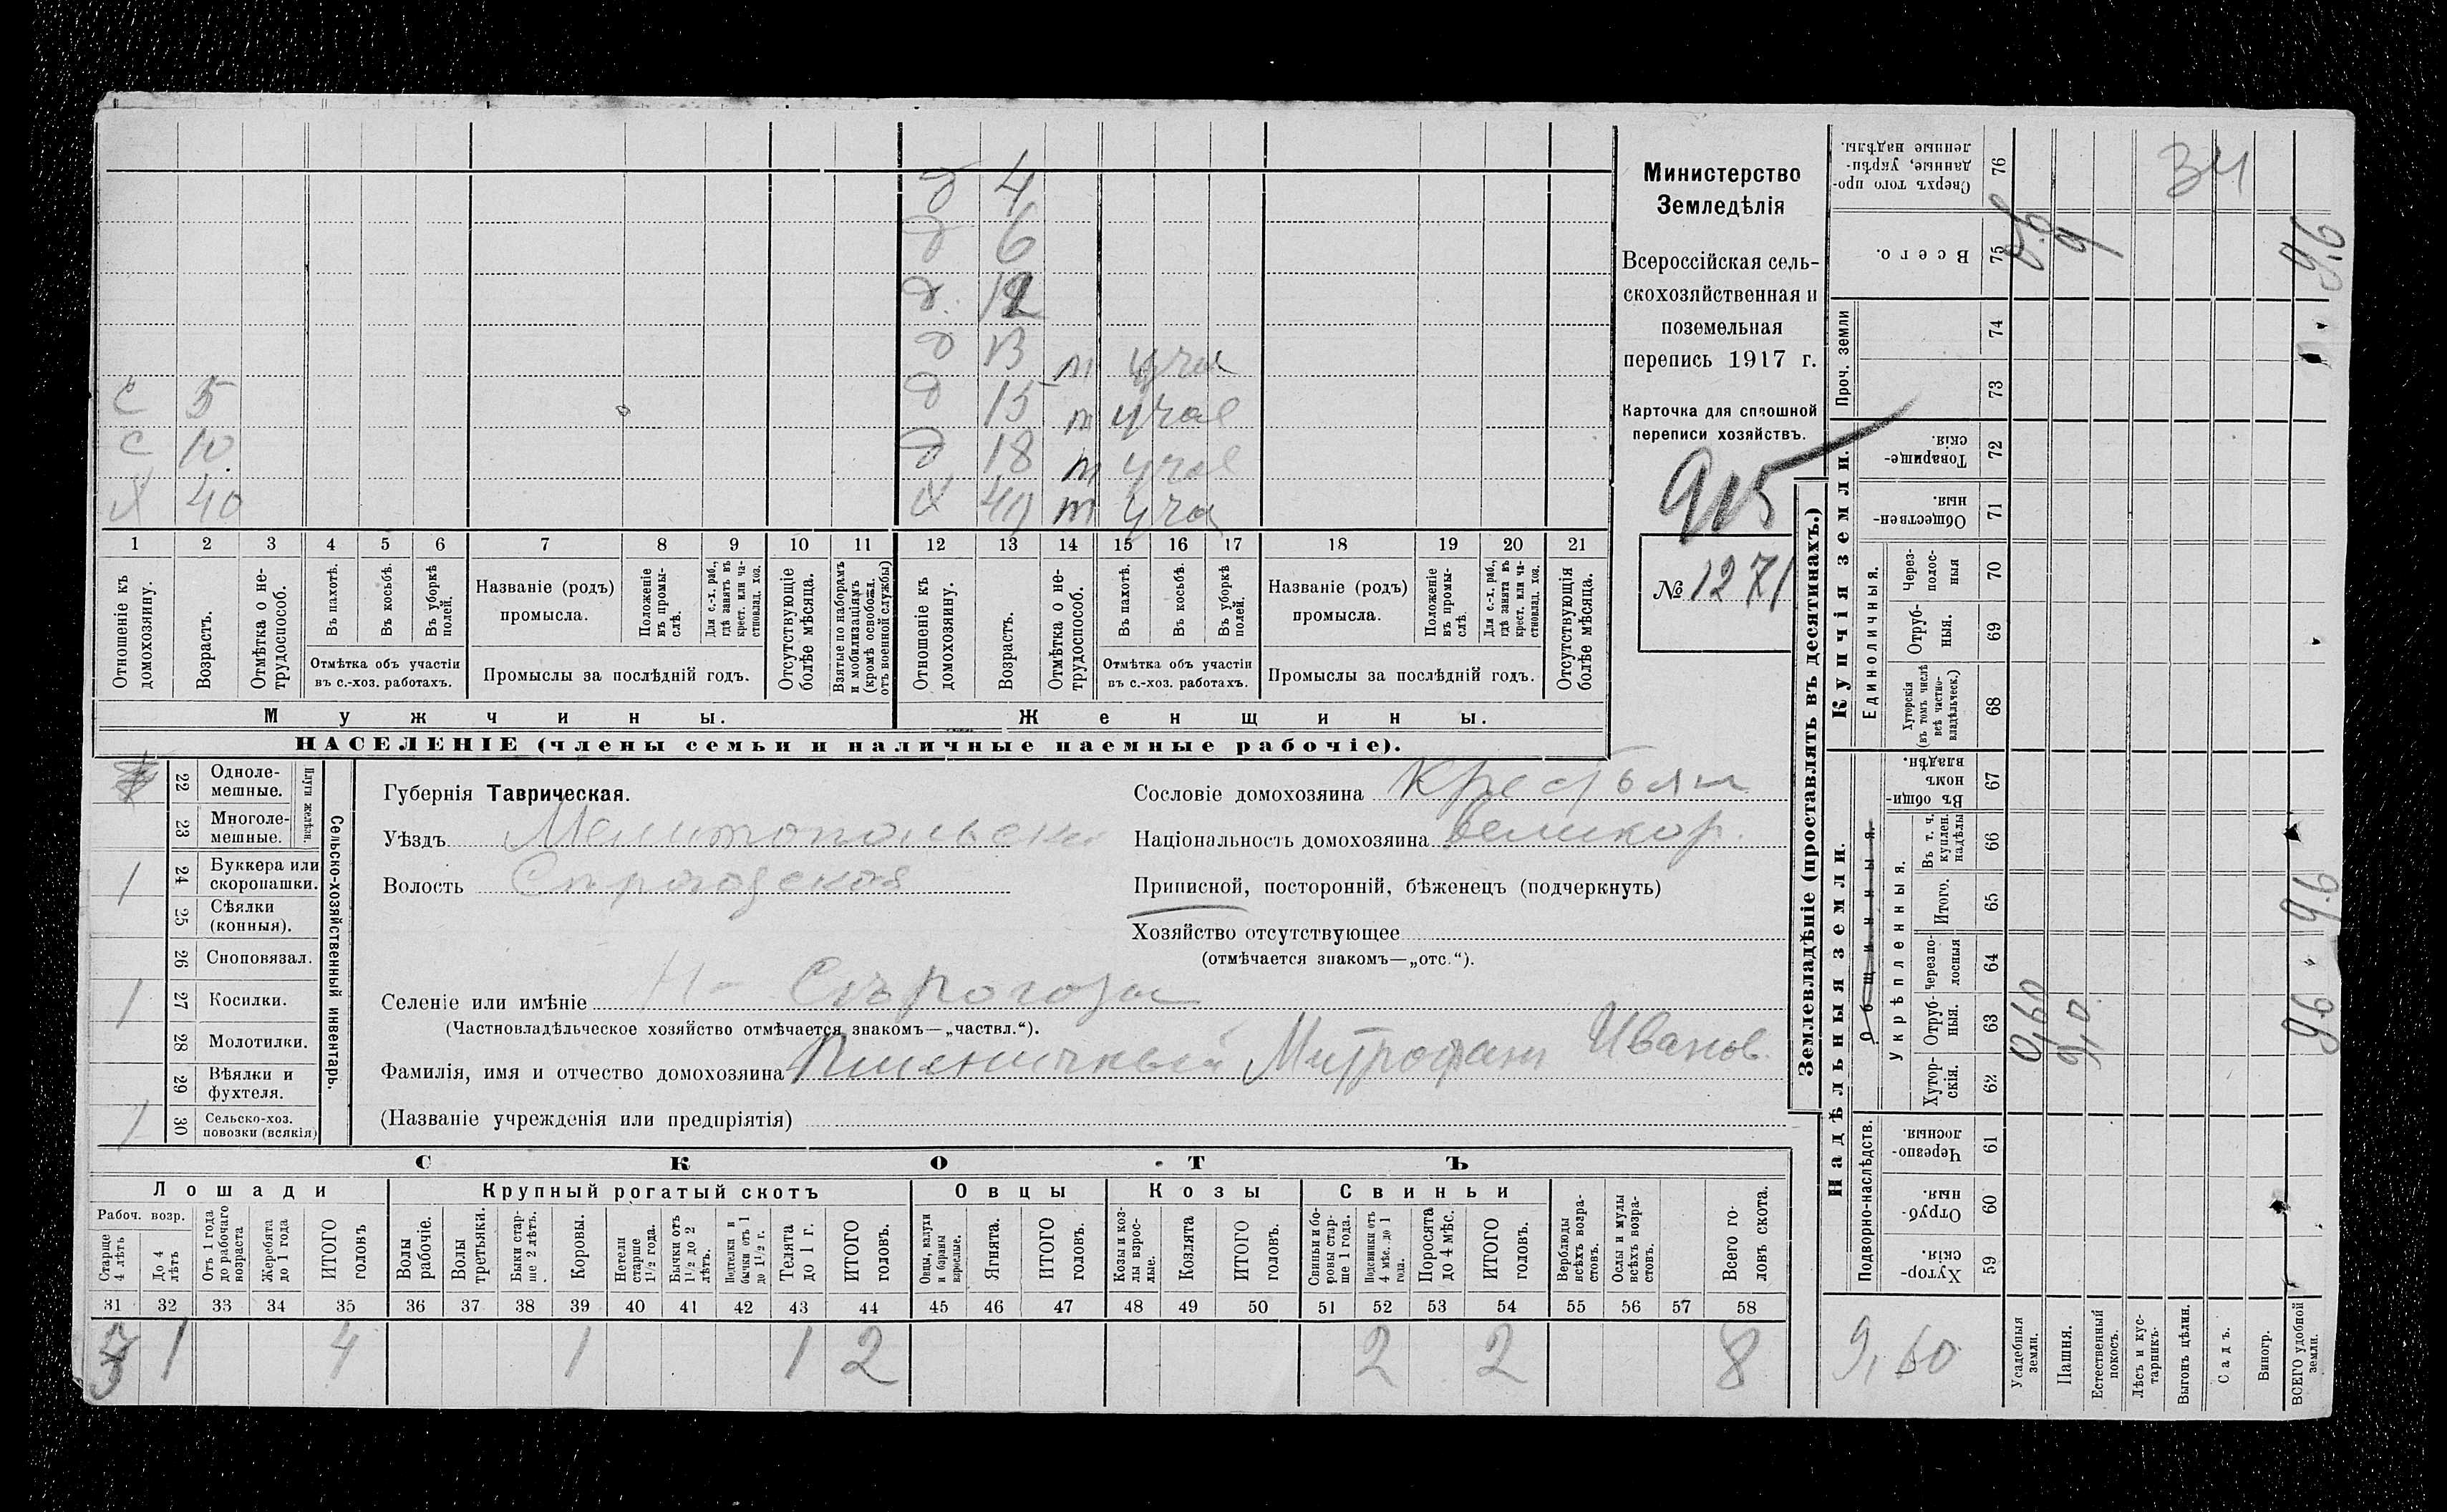 д 4
д 6
д. 12
д 13 т уча
С 5 д 15 т учас
С 10 д 18 т учас
Х 40 Х 40 т уча
1 2 3 4 5 6 7 8 9 10 11 12 13 14 15 16 17 18 19 20 21
Отношеніе къ домохозяину.
Возрастъ.
Отмѣтка о нетрудоспособ.
Въ пахотѣ.
Въ косьбѣ.
Въ уборкѣ полей.
Отмѣтка объ участіи
въ с.-хоз. работахъ.
Названіе (родъ)
промысла.
Положеніе въ промыслѣ.
Для с.-х. раб., гдѣ занятъ въ крест. или частновлад. хоз.
Промыслы за послѣдній годъ.
Отсутствующіе болѣе мѣсяца.
Взятые по наборамъ и мобилизаціямъ (кромѣ освобожд. отъ военной службы)
Отношеніе къ домохозяину.
Возрастъ.
Отмѣтка о нетрудоспособ.
Въ пахотѣ.
Въ косьбѣ.
Въ уборкѣ полей.
Отмѣтка объ участіи
въ с.-хоз. работахъ.
Названіе (родъ)
промысла.
Положеніе въ промыслѣ.
Для с.-х. раб., гдѣ занята въ крест. или частновлад. хоз.
Промыслы за послѣдній годъ.
Отсутствующія болѣе мѣсяца.
Мужчины.
Женщины.
НАСЕЛЕНІЕ (члены семьи и наличные наемные рабочіе).
Министерство
Земледѣлія
Всероссійская сель-
скохозяйственная и
поземельная
перепись 1917 г.
Карточка для сплошной
переписи хозяйствъ.
915
№ 1271
22 Одноле-
мешные.
23 Многоле-
мешные.
Плуги желѣзн.
1 24 Буккера или
скоропашки.
25 Сѣялки
(конныя).
26 Сноповязал.
1 27 Косилки.
28 Молотилки.
29 Вѣялки и
фухтеля.
1 30 Сельско-хоз.
повозки (всякія)
Сельско-хозяйственный инвентарь.
Губернія Таврическая.
Уѣздъ Мелитопольски
Волость Сърогозская
Сословіе домохозяина Крестьян
Національность домохозяина великор.
Приписной, посторонній, бѣженецъ (подчеркнуть)
Хозяйство отсутствующее
(отмѣчается знакомъ—„отс.“).
Селеніе или имѣніе Н- Сърогозы
(Частновладѣльческое хозяйство отмѣчается знакомъ—„частвл.“).
Фамилія, имя и отчество домохозяина Пшеничный Митрофан Иванов.
(Названіе учрежденія или предпріятія)
СКОТЪ
Лошади
Крупный рогатый скотъ
Овцы
Козы
Свиньи
Рабоч. возр.
Старше 4 лѣтъ
До 4 лѣтъ
Отъ 1 года до рабочаго возраста
Жеребята до 1 года
ИТОГО головъ
Волы рабочіе.
Волы третьяки.
Быки старше 2 лѣтъ.
Коровы.
Нетели старше 1 1/2 года.
Бычки отъ 1 1/2 до 2 лѣтъ.
Подтелки и бычки отъ 1 до 1 1/2 г.
Телята до 1 г.
ИТОГО головъ.
Овцы, валухи и бараны взрослые.
Ягнята.
ИТОГО головъ.
Козы и козлы взрослые.
Козлята
ИТОГО головъ.
Свиньи и боровы старше 1 года.
Подсвинки отъ 4 мѣс. до 1 года.
Поросята до 4 мѣс.
ИТОГО головъ.
Верблюды всѣхъ возрастовъ.
Ослы и мулы всѣхъ возрастовъ.
Всего головъ скота.
31 32 33 34 35 36 37 38 39 40 41 42 43 44 45 46 47 48 49 50 51 52 53 54 55 56 57 58
3 1 4 1 1 2 2 2 8
Землевладѣніе (проставлять въ десятинахъ.)
Надѣльныя земли.
Купчія земли.
Проч. земли
Подворно-наслѣдств.
Общинныя.
Укрѣпленныя.
Единоличныя.
Сверхъ того проданные, укрѣпленные надѣлы. 76 34
Всего. 75 0.6 9 9,6
74
73
Товарищескія. 72
Общественныя. 71
Черезполосныя 70
Отрубныя. 69
Хуторскія (въ томъ числѣ всѣ частновладѣльческ.) 68
Въ общинномъ владѣн. 67
Въ т. ч. куплен. надѣлы 66
Итого. 65 9.6
Черезполосныя 64 "
Отрубныя. 63 0,60 9,0 9.6
Хуторскія. 62
Черезполосныя. 61
Отрубныя. 60
Хуторскія. 59
9,60
Усадебныя земли.
Пашня.
Естественный покосъ.
Лѣсъ и кустарникъ.
Выгонъ цѣлин.
Садъ.
Виногр.
ВСЕГО удобной земли.